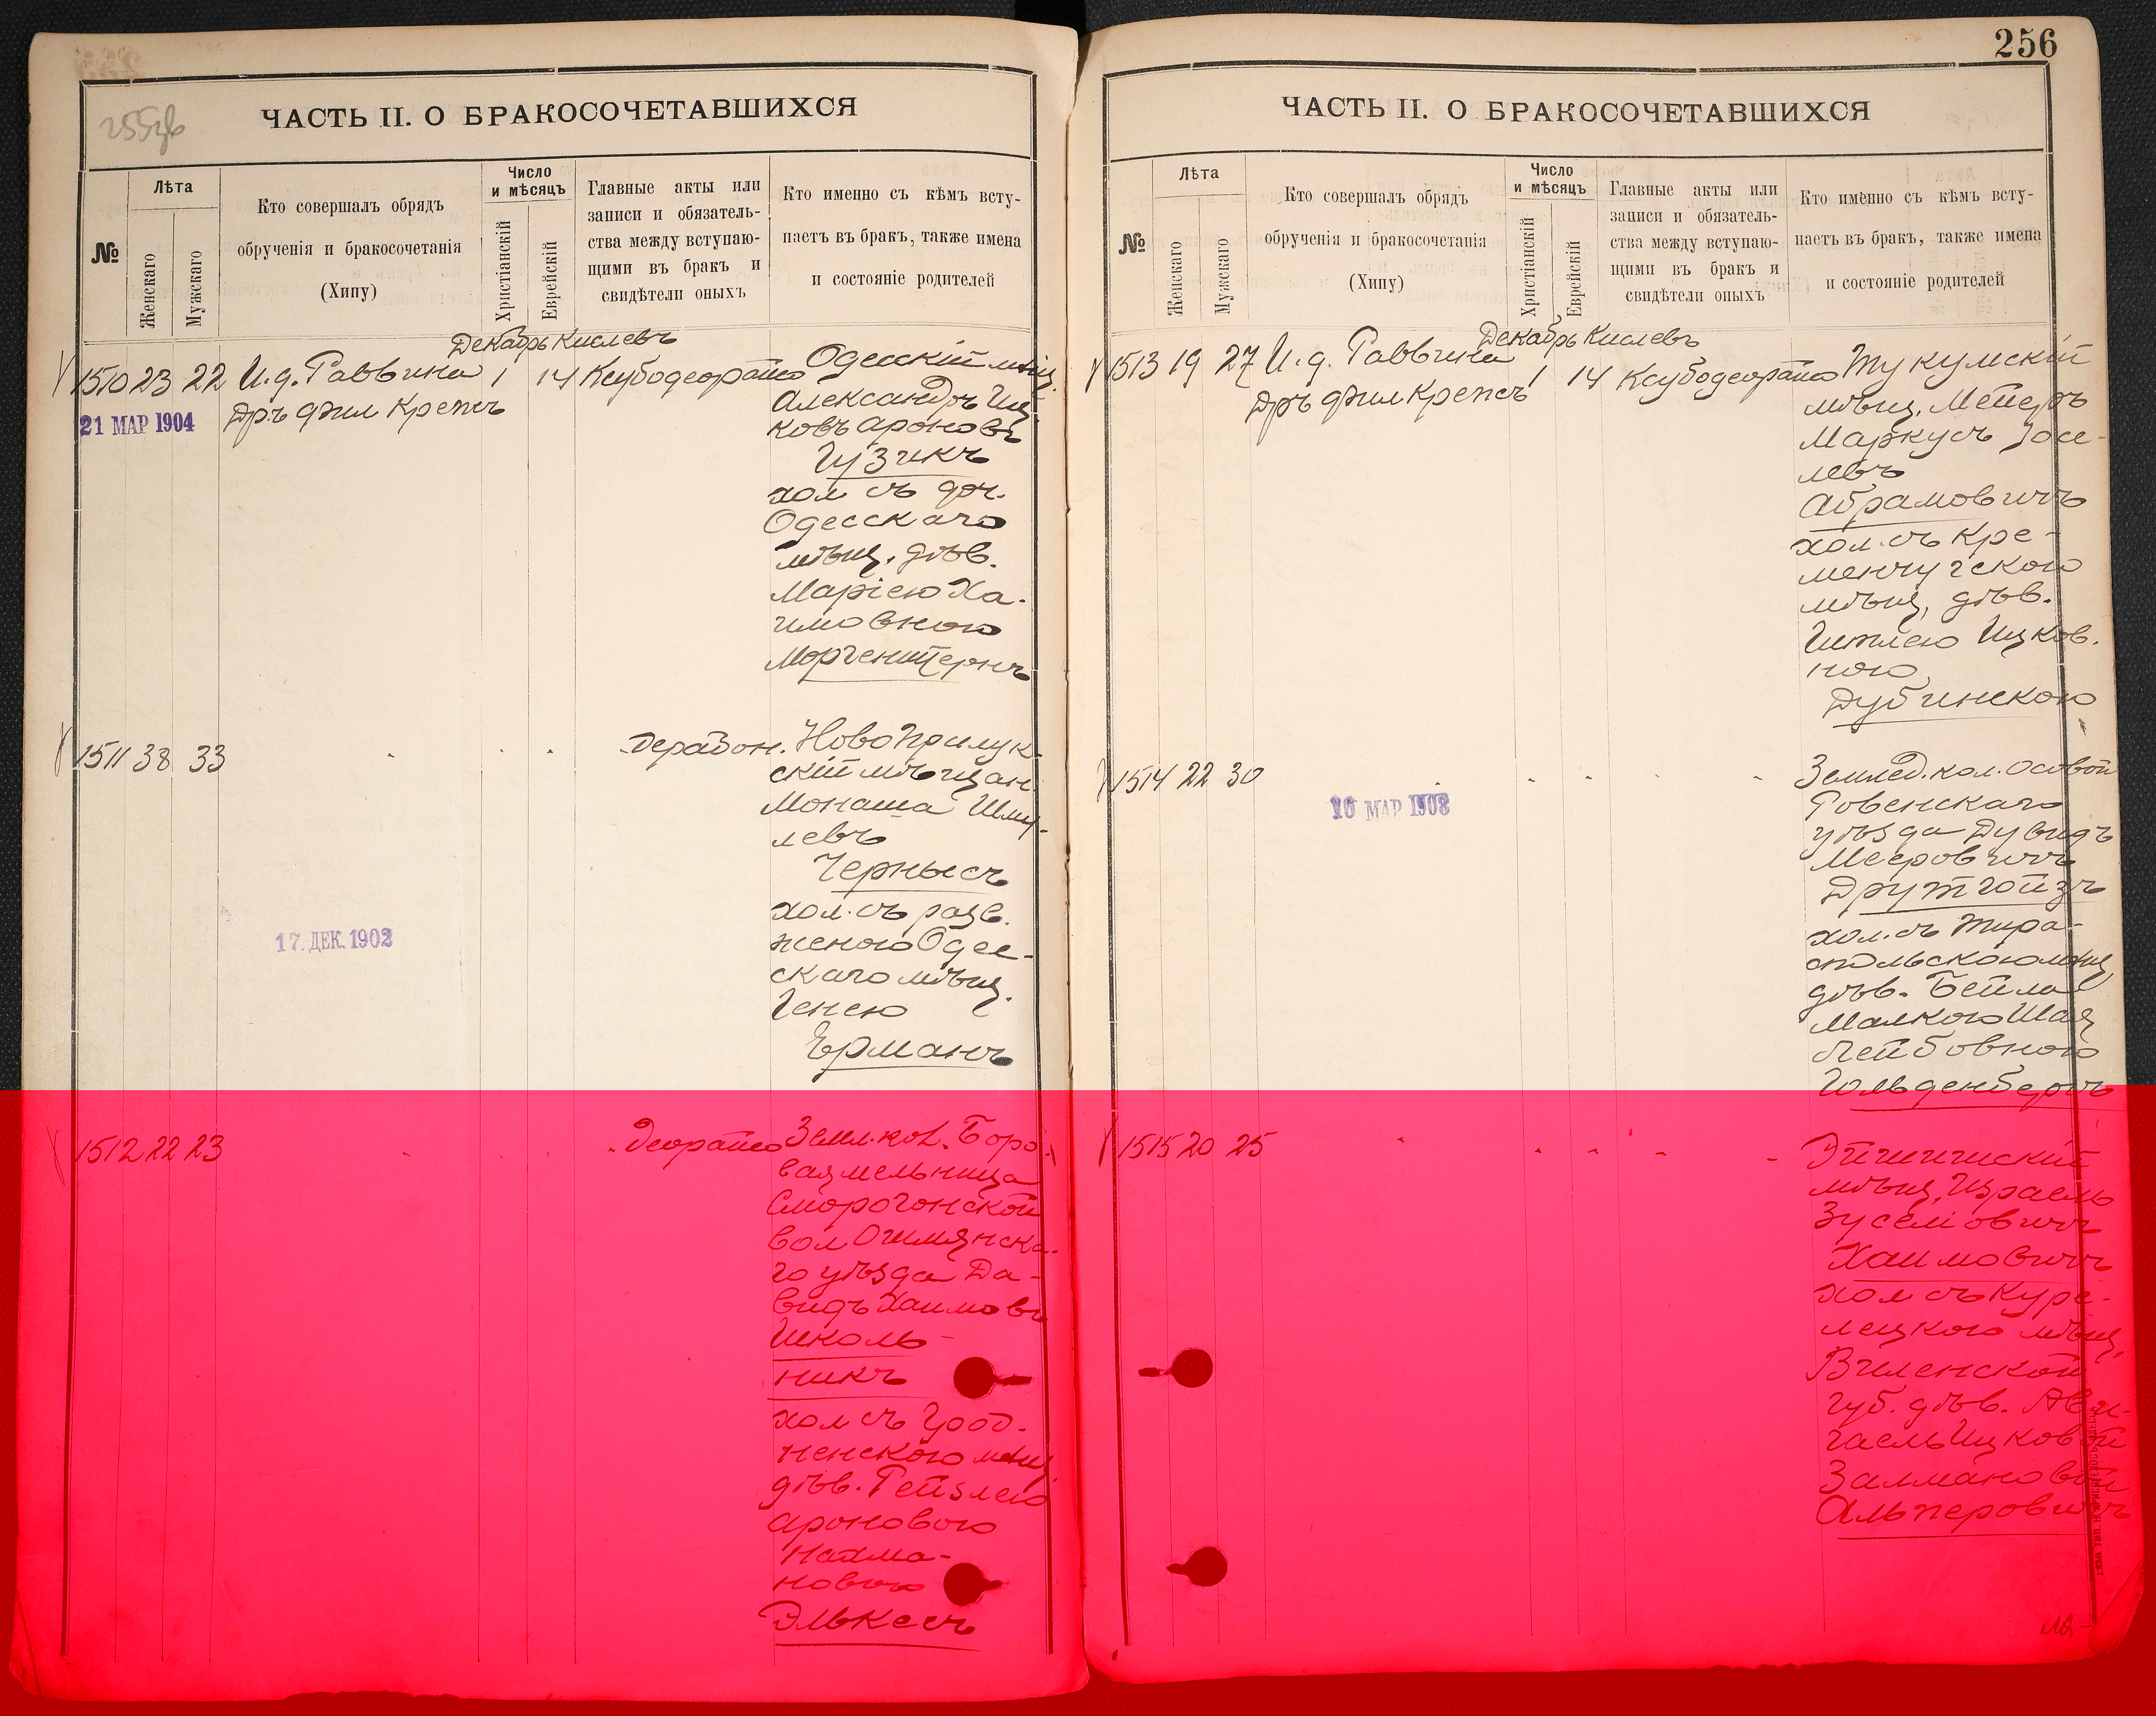 255об
ЧАСТЬ II. О БРАКОСОЧЕТАВШИХСЯ
№
Лѣта
Женскаго
Мужскаго
Кто совершалъ обрядъ
обрученія и бракосочетанія
(Хипу)
Число
и мѣсяцъ
Христіанскій
Еврейскій
Главные акты или
записи и обязатель-
ства между вступаю-
щими въ бракъ и
свидѣтели оныхъ
Кто именно съ кѣмъ всту-
паетъ въ бракъ, также имена
и состояніе родителей
Декабрь Кислевъ
1510 23 22 И.д. Раввина 1 14 Ксубодеорайсо
Др.ъ фил Крепсъ
21 МАР 1904
Одесскій мѣщ.
Александръ Иц
ковъ Ароновъ
Гузикъ
хол съ доч.
Одесскаго
мѣщ. дѣв.
Маріею Ха-
имовною
Моргенштернъ
1511 38 33
Дерабон.
17. ДЕК. 1902
Новоприлук-
скій мѣщан.
Монаша Шму-
левъ
Чернысъ
хол. съ разв.
женою Одес-
скаго мѣщ.
Генею
Ерманъ
1512 22 23
Деорайсо
Земл. кол. Боро
вая мельница
Сморгонской
вол Ошмянска-
го уѣзда Да-
видъ Хаимовъ
Школь-
никъ
хол съ Грод-
ненскою мѣщ.
дѣв. Рейзлею
Ароновою
Нахма-
новою
Элькесъ
256
ЧАСТЬ II. О БРАКОСОЧЕТАВШИХСЯ
№
Лѣта
Женскаго
Мужскаго
Кто совершалъ обрядъ
обрученія и бракосочетанія
(Хипу)
Число
и мѣсяцъ
Христіанскій
Еврейскій
Главные акты или
записи и обязатель-
ства между вступаю-
щими въ бракъ и
свидѣтели оныхъ
Кто именно съ кѣмъ всту-
паетъ въ бракъ, также имена
и состояніе родителей
Декабрь Кислевъ
1513 19 27 И.д. Раввина 1 14 Ксубодеорайсо
Др.ъ фил Крепсъ
Тукумскій
мѣщ. Мейеръ
Маркусъ Іосе-
левъ
Абрамовичъ
хол. съ Кре-
менчугскою
мѣщ. дѣв.
Гитлею Ицков.
ною
Дубинскою
1514 22 30
16 МАР 1908
Землед. кол. Осовой
Ровенскаго
уѣзда Дувидъ
Мееровичъ
Друтгойзъ
хол. съ Тира-
спольскою мѣщ
дѣв. Бейла
Малкою Шая
Лейбовною
Гольденбергъ
1515 20 25
Эйшишскій
мѣщ. Израель
Зуселіовичъ
Хаимовичъ
хол съ Куре-
нецкою мѣщ.
Виленской
губ. дѣв. Ави-
гаель Ицковой
Залмановой
Альперовичъ